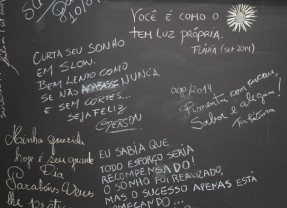 10/0
VOCÊ É COMO O
TEM LUZ PRÓPRIA.
FLÁVIA (set 2014)
CURTA SEU SONHO
EM SLOW.
BEM LENTO COMO
SE NÃO NUNCA
E SEM CORTES...
SEJA FELIZ
GERSON
ago/2014
Pimenta com cacau,
Sabor e alegria!
Minha querida
hoje é seu grande
Dia
Parabéns Deus
EU SABIA QUE
TODO ESFORÇO SERIA
RECOMPENSADO!
O SONHO FOI REALIZADO,
MAS O SUCESSO APENAS ESTÁ
COMEÇANDO...